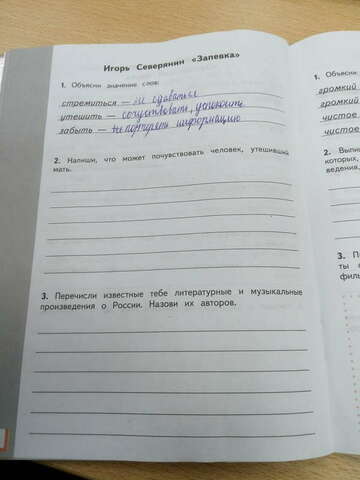 Игорь Северянин «Запевка»
1. Объясни значение слов:
стремиться — не сдаваться
утешить — сочувствовать, успокоить
забыть — не повторять информацию
2. Напиши, что может почувствовать человек, утешивший
мать.
3. Перечисли известные тебе литературные и музыкальные
произведения о России. Назови их авторов.
1. Объясни
громкий
громкий
чистое
чистое
2. Выпи
которых,
ведения,
3. П
ты с
филь